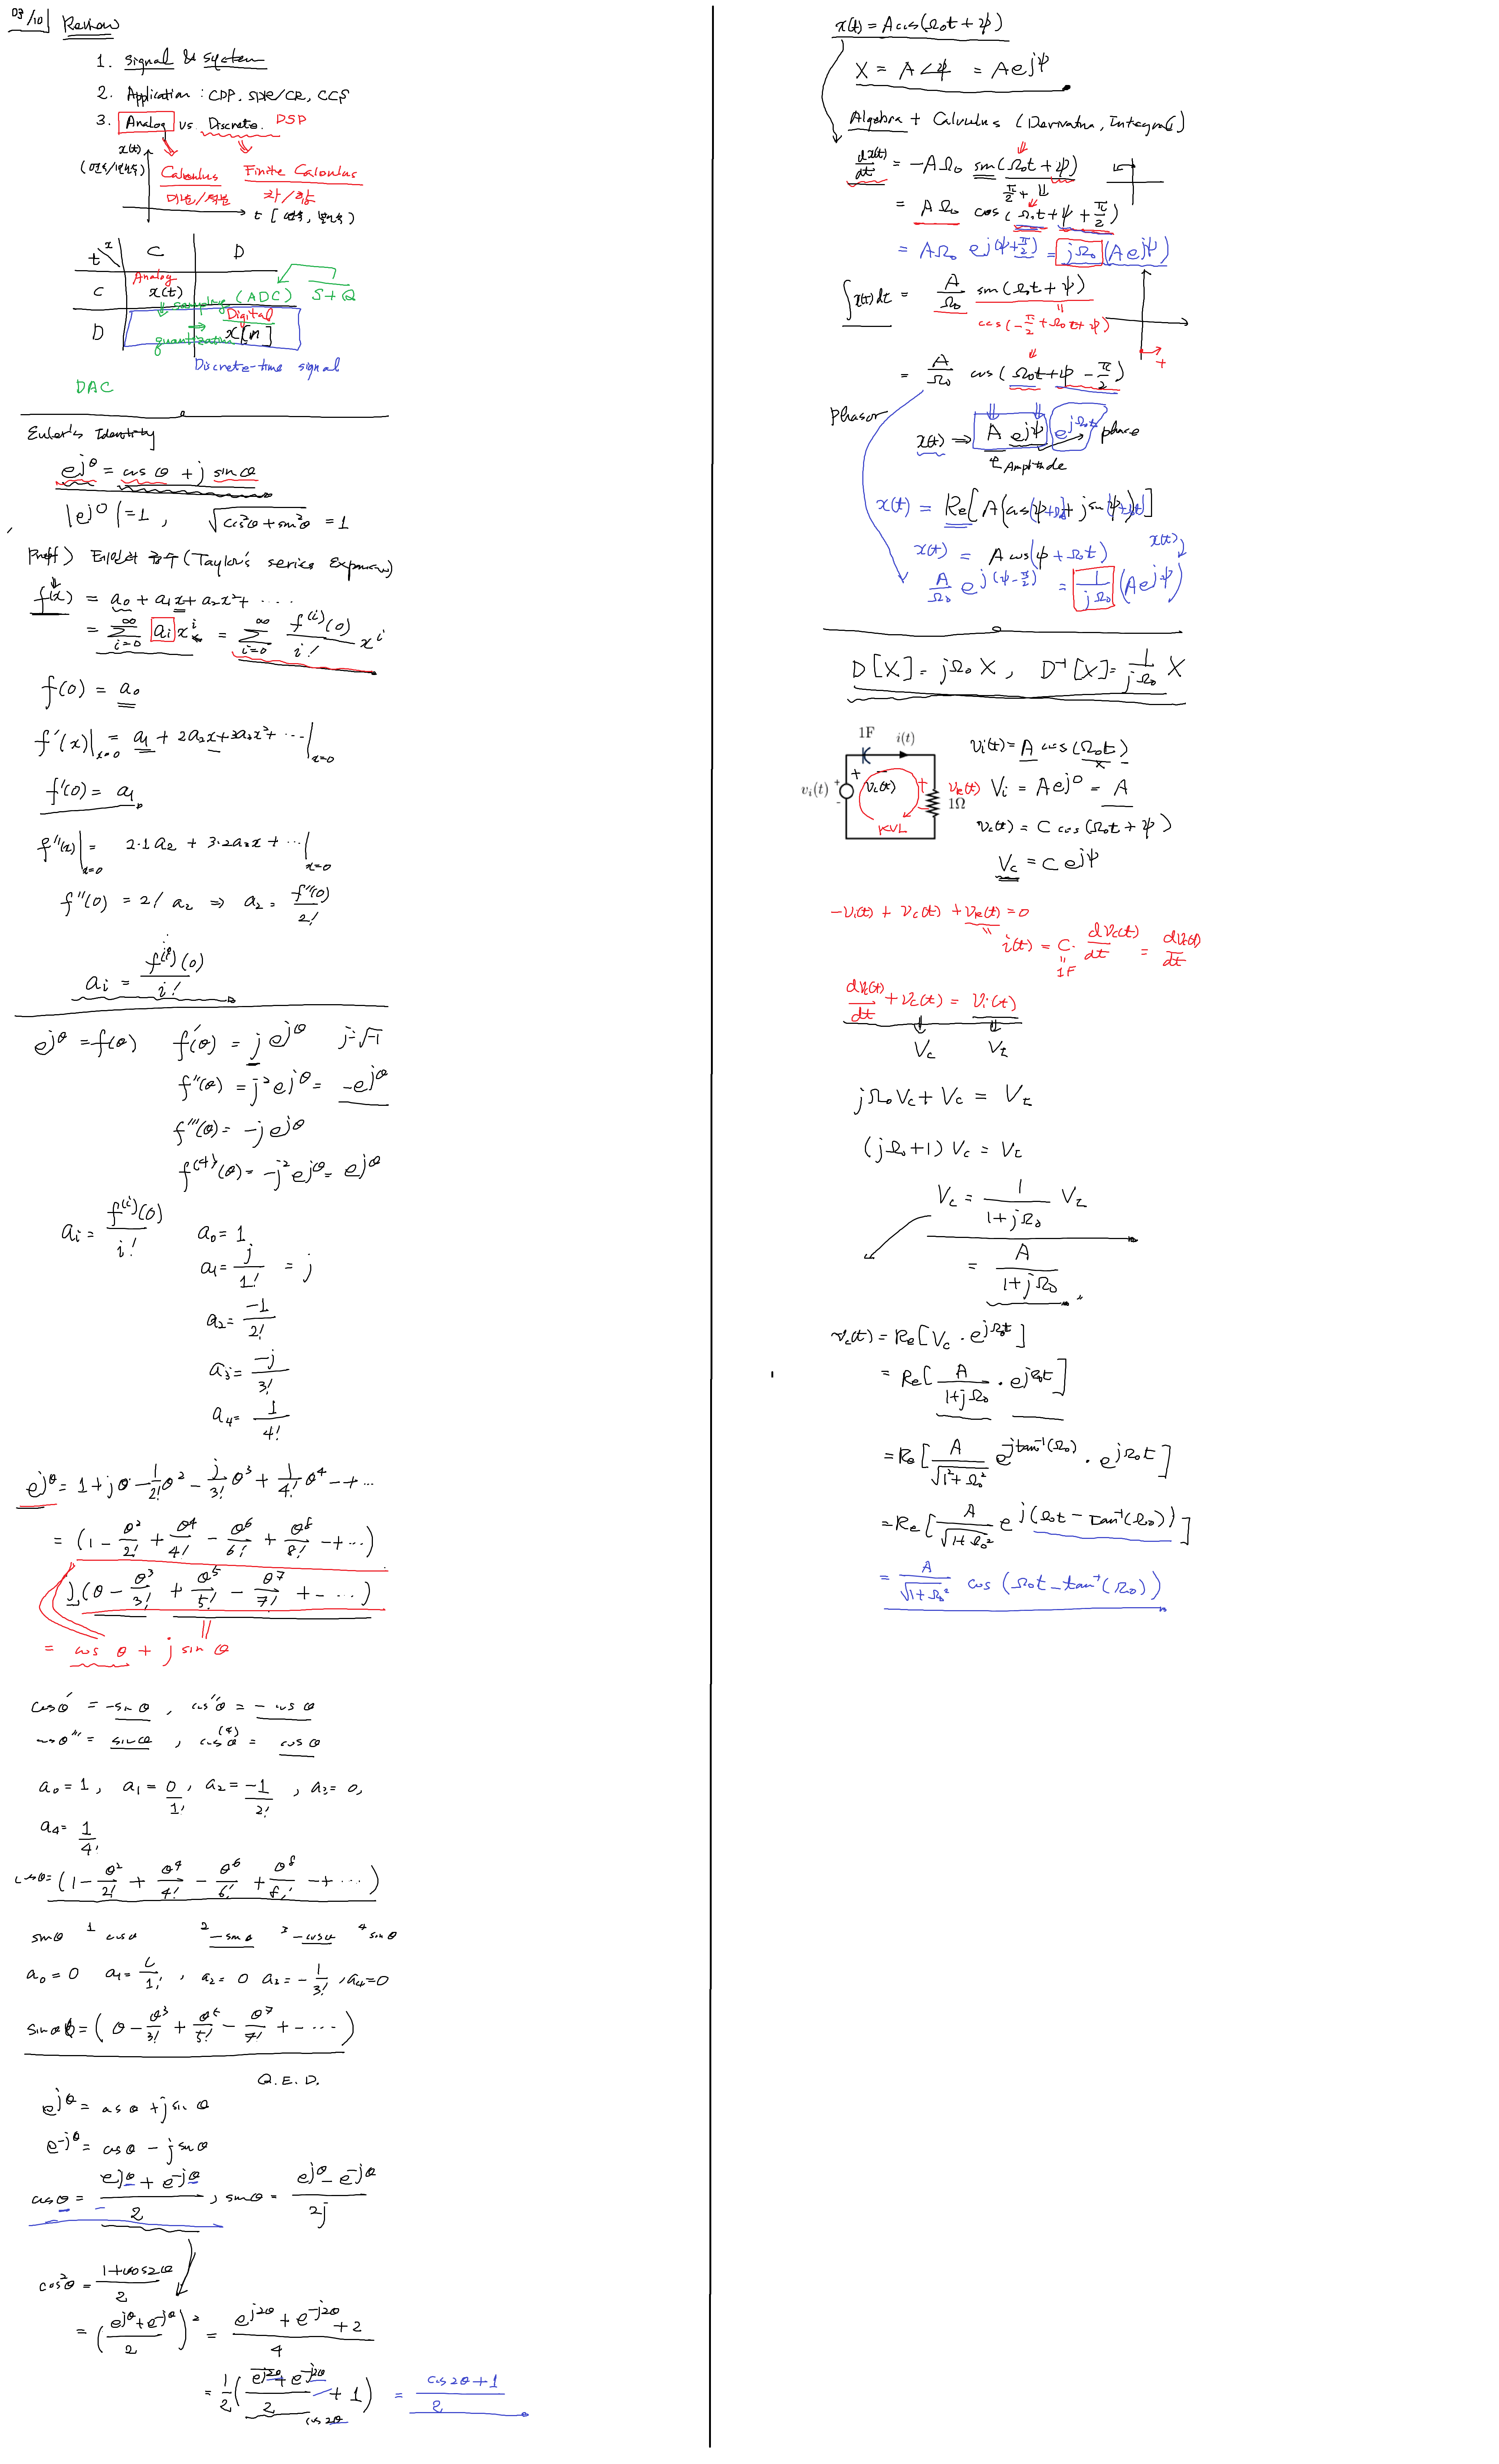 03/10 Review
1. signal & system
2. Application : CDP, SDR/CR, CCS
3. Analog vs Discrete. DSP
x(t)
(연속/불연속)
Calculus Finite Calculus
미분/적분 차/합
t [연속, 불연속)
t x C D
Analog
C x(t) sampling (ADC) S+Q
Digital
D quantization x[n]
Discrete-time signal
DAC
Euler's Identity
e^{jθ} = cos θ + j sin θ
|e^{jθ}| = 1 , √(cos²θ + sin²θ) = 1
Proff) 테일러 급수 (Taylor's series Expansion)
f(x) = a₀ + a₁x + a₂x² + ....
= Σ_{i=0}^{∞} a_i x^i = Σ_{i=0}^{∞} f^{(i)}(0)/i! x^i
f(0) = a₀
f'(x)|_{x=0} = a₁ + 2a₂x + 3a₃x² + ...|_{x=0}
f'(0) = a₁
f''(x)|_{x=0} = 2·1 a₂ + 3·2a₃x + ...|_{x=0}
f''(0) = 2! a₂ ⇒ a₂ = f''(0)/2!
a_i = f^{(i)}(0)/i!
e^{jθ} = f(θ) f'(θ) = j e^{jθ} j=√-1
f''(θ) = j² e^{jθ} = -e^{jθ}
f'''(θ) = -j e^{jθ}
f^{(4)}(θ) = -j² e^{jθ} = e^{jθ}
a_i = f^{(i)}(0)/i! a₀ = 1
a₁ = j/1! = j
a₂ = -1/2!
a₃ = -j/3!
a₄ = 1/4!
e^{jθ} = 1 + jθ - 1/2! θ² - j/3! θ³ + 1/4! θ⁴ - + ...
= (1 - θ²/2! + θ⁴/4! - θ⁶/6! + θ⁸/8! - + ...)
j(θ - θ³/3! + θ⁵/5! - θ⁷/7! + - ....)
= cos θ + j sin θ
cosθ' = -sin θ , cos''θ = - cos θ
cosθ''' = sin θ , cos^{(4)}θ = cos θ
a₀ = 1, a₁ = 0/1!, a₂ = -1/2! , a₃ = 0,
a₄ = 1/4!
cosθ = (1 - θ²/2! + θ⁴/4! - θ⁶/6! + θ⁸/8! - + ...)
sinθ 1 cosθ 2 -sinθ 3 -cosθ 4 sinθ
a₀ = 0 a₁ = 1/1! , a₂ = 0 a₃ = -1/3! , a₄ = 0
sinθ = (θ - θ³/3! + θ⁵/5! - θ⁷/7! + - ....)
Q.E.D.
e^{jθ} = cos θ + j sin θ
e^{-jθ} = cosθ - j sinθ
cosθ = (e^{jθ} + e^{-jθ})/2 , sinθ = (e^{jθ} - e^{-jθ})/2j
cos²θ = (1+cos2θ)/2
= ((e^{jθ} + e^{-jθ})/2)² = (e^{j2θ} + e^{-j2θ} + 2)/4
= 1/2 ((e^{j2θ} + e^{-j2θ})/2 + 1) = (cos2θ + 1)/2
cos 2θ
x(t) = A cos(Ω₀t + ψ)
X = A∠ψ = A e^{jψ}
Algebra + Calculus (Derivative, Integral)
dx(t)/dt = -AΩ₀ sin(Ω₀t + ψ)
π/2 +
= AΩ₀ cos(Ω₀t + ψ + π/2)
= AΩ₀ e^{j(ψ+π/2)} = jΩ₀ (A e^{jψ})
∫x(t)dt = A/Ω₀ sin(Ω₀t + ψ)
cos(-π/2 + Ω₀t + ψ)
+
= A/Ω₀ cos(Ω₀t + ψ - π/2)
Phasor
x(t) ⇒ A e^{jψ} e^{jΩ₀t} phase
Amplitude
x(t) = Re[A(cos(ψ+Ω₀t) + j sin(ψ+Ω₀t))]
x(t) = A cos(ψ + Ω₀t) x(t)
A/Ω₀ e^{j(ψ-π/2)} = 1/jΩ₀ (A e^{jψ})
D[X] = jΩ₀X , D⁻¹[X] = 1/jΩ₀ X
1F i(t)
v_i(t) + - + v_c(t) - + v_R(t) 1Ω
KVL
v_i(t) = A cos(Ω₀t)
V_i = A e^{j0} = A
v_c(t) = C cos(Ω₀t + ψ)
V_c = C e^{jψ}
-v_i(t) + v_c(t) + v_R(t) = 0
i(t) = C · dv_c(t)/dt = dv_c(t)/dt
1F
dv_c(t)/dt + v_c(t) = v_i(t)
V_c V_i
jΩ₀V_c + V_c = V_i
(jΩ₀+1) V_c = V_i
V_c = 1/(1+jΩ₀) V_i
= A/(1+jΩ₀)
v_c(t) = Re[V_c · e^{jΩ₀t}]
= Re[A/(1+jΩ₀) · e^{jΩ₀t}]
= Re[A/√(1²+Ω₀²) e^{-jtan⁻¹(Ω₀)} · e^{jΩ₀t}]
= Re[A/√(1+Ω₀²) e^{j(Ω₀t - tan⁻¹(Ω₀))}]
= A/√(1+Ω₀²) cos(Ω₀t - tan⁻¹(Ω₀))